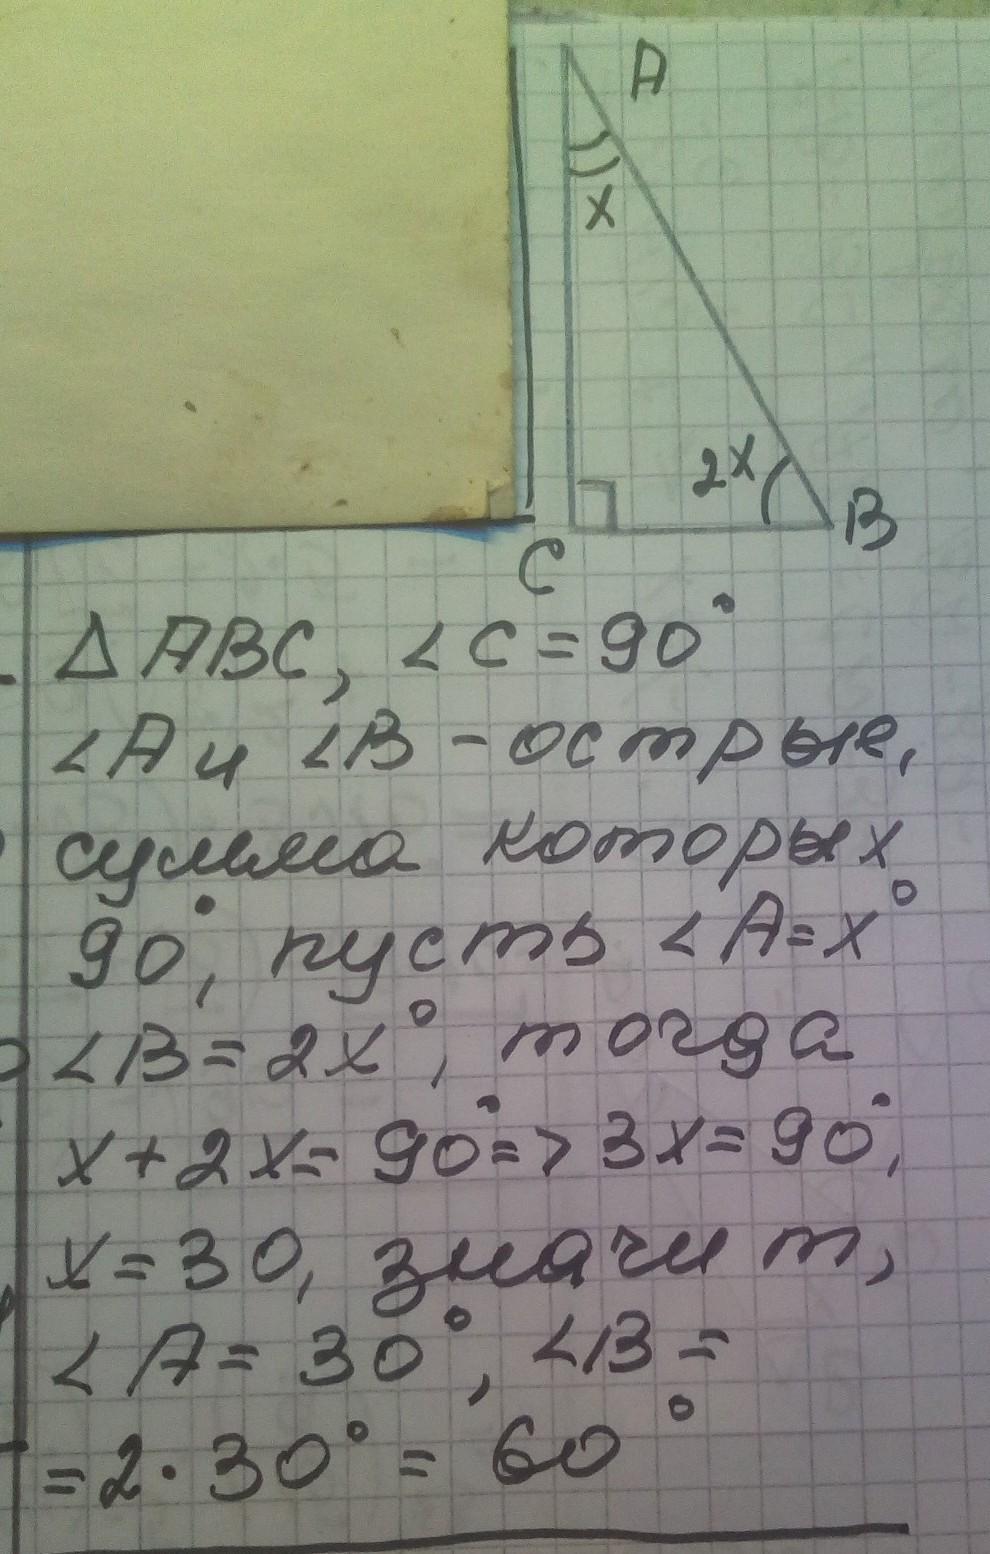 A
x
2x
B
C
△ ABC, ∠C = 90°
∠A и ∠B - острые,
сумма которых
90°, пусть ∠A = x°
∠B = 2x°, тогда
x + 2x = 90° => 3x = 90°,
x = 30, значит,
∠A = 30°, ∠B =
= 2 · 30° = 60°